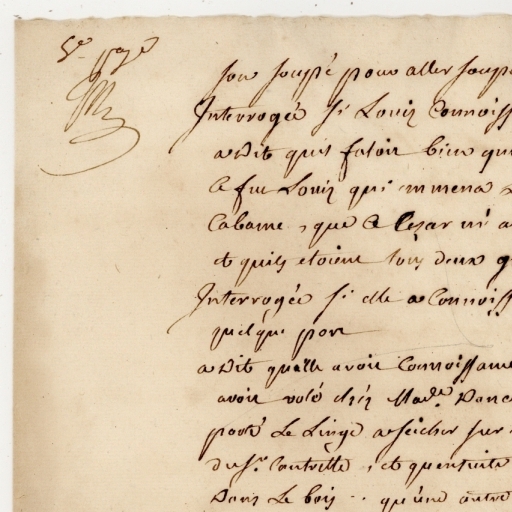 5e page
son soupé pour aller soup
Interrogée si Louis Connoiss
a dit qu'il faloit bien qu
ce fut Louis qui emmena
Cabanne, que Cezar ni a
et quils etoient tous deux q
Interrogée si elle a Connoiss
quelque part
a Dit quelle avoit Connoissance
avoit volé chéz Made. Danc
porté Le Linge a seicher sur
du Sr. Contrelle, et quensuite
Dans Le bois .. qu'une autre